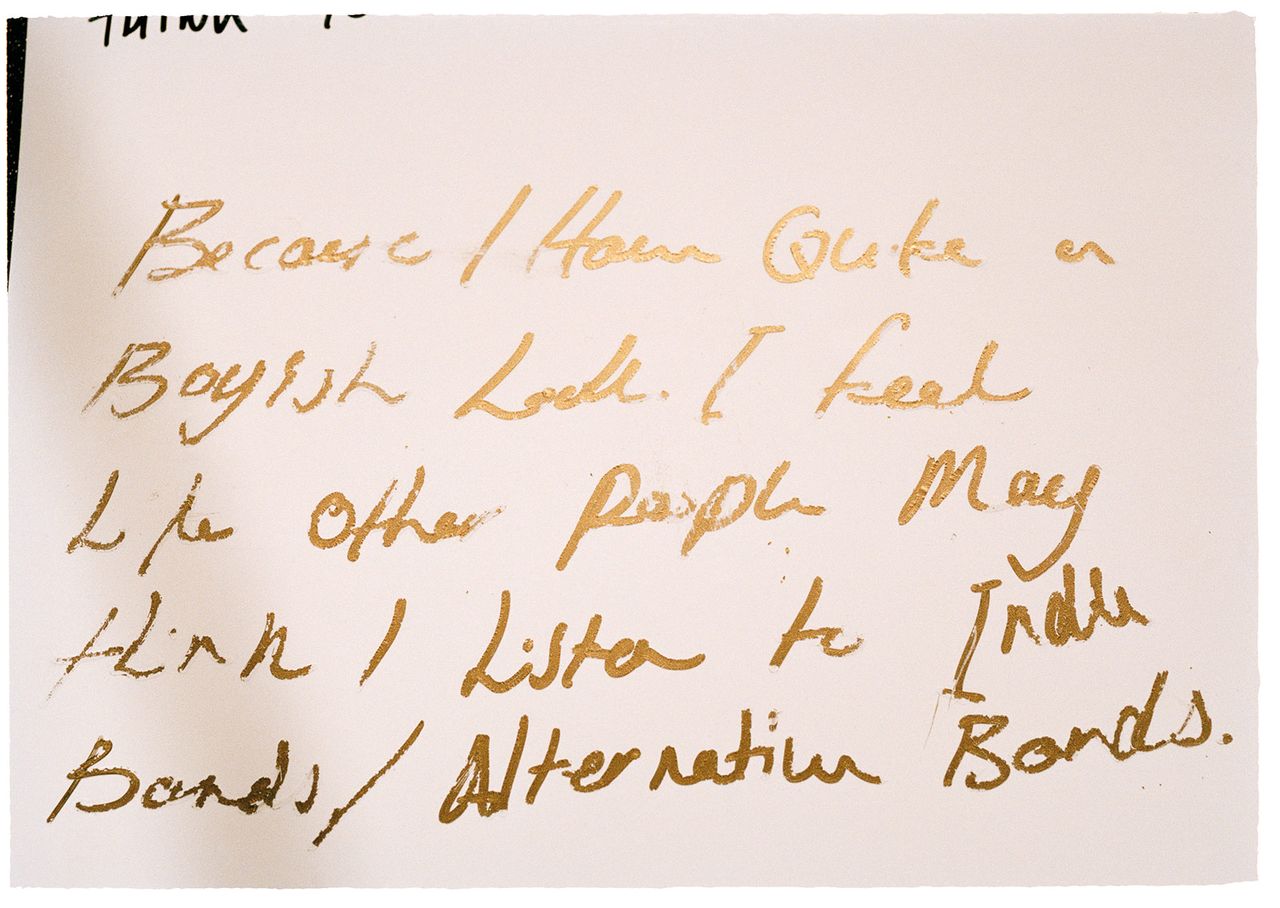 Because I Have Quite a
Boyish Look. I feel
Like other people May
think I Listen to Indie
Bands/ Alternative Bands.